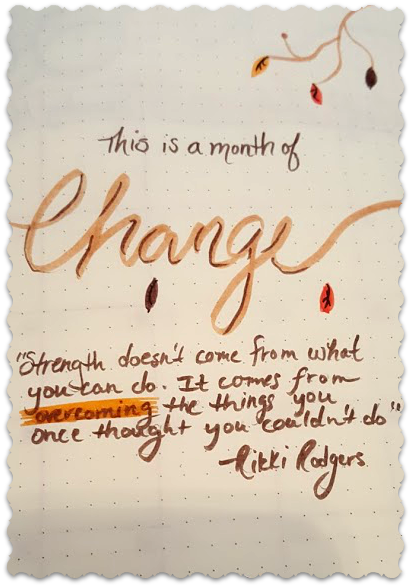 This is a month of
Change
"Strength doesn't come from what
you can do. It comes from
overcoming the things you
once thought you couldn't do"
-Rikki Rodgers